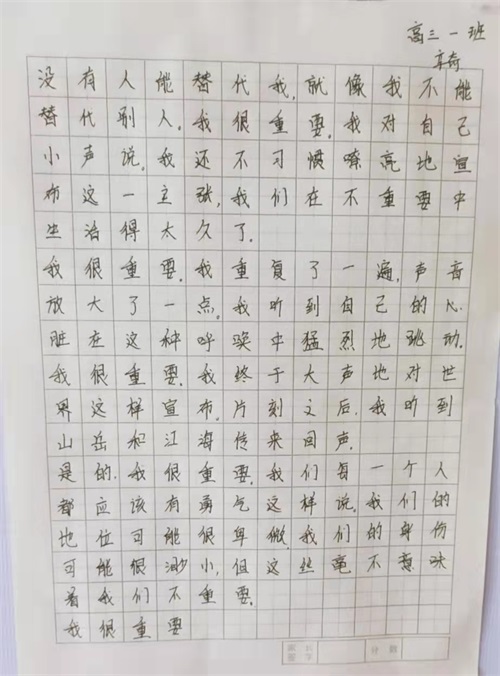 高三一班
没有人能替代我,就像我不能
替代别人,我很重要。我对自己
小声说,我还不习惯嘹亮地宣
布这一主张,我们在不重要中
生活得太久了。
我很重要。我重复了一遍,声音
放大了一点,我听到自己的心
脏在这种呼唤中猛烈地跳动。
我很重要。我终于大声地对世
界这样宣布。片刻之后,我听到
山岳和江海传来回声。
是的,我很重要。我们每一个人
都应该有勇气这样说。我们的
地位可能很卑微,我们的身份
可能很渺小,但这丝毫不意味
着我们不重要。
我很重要